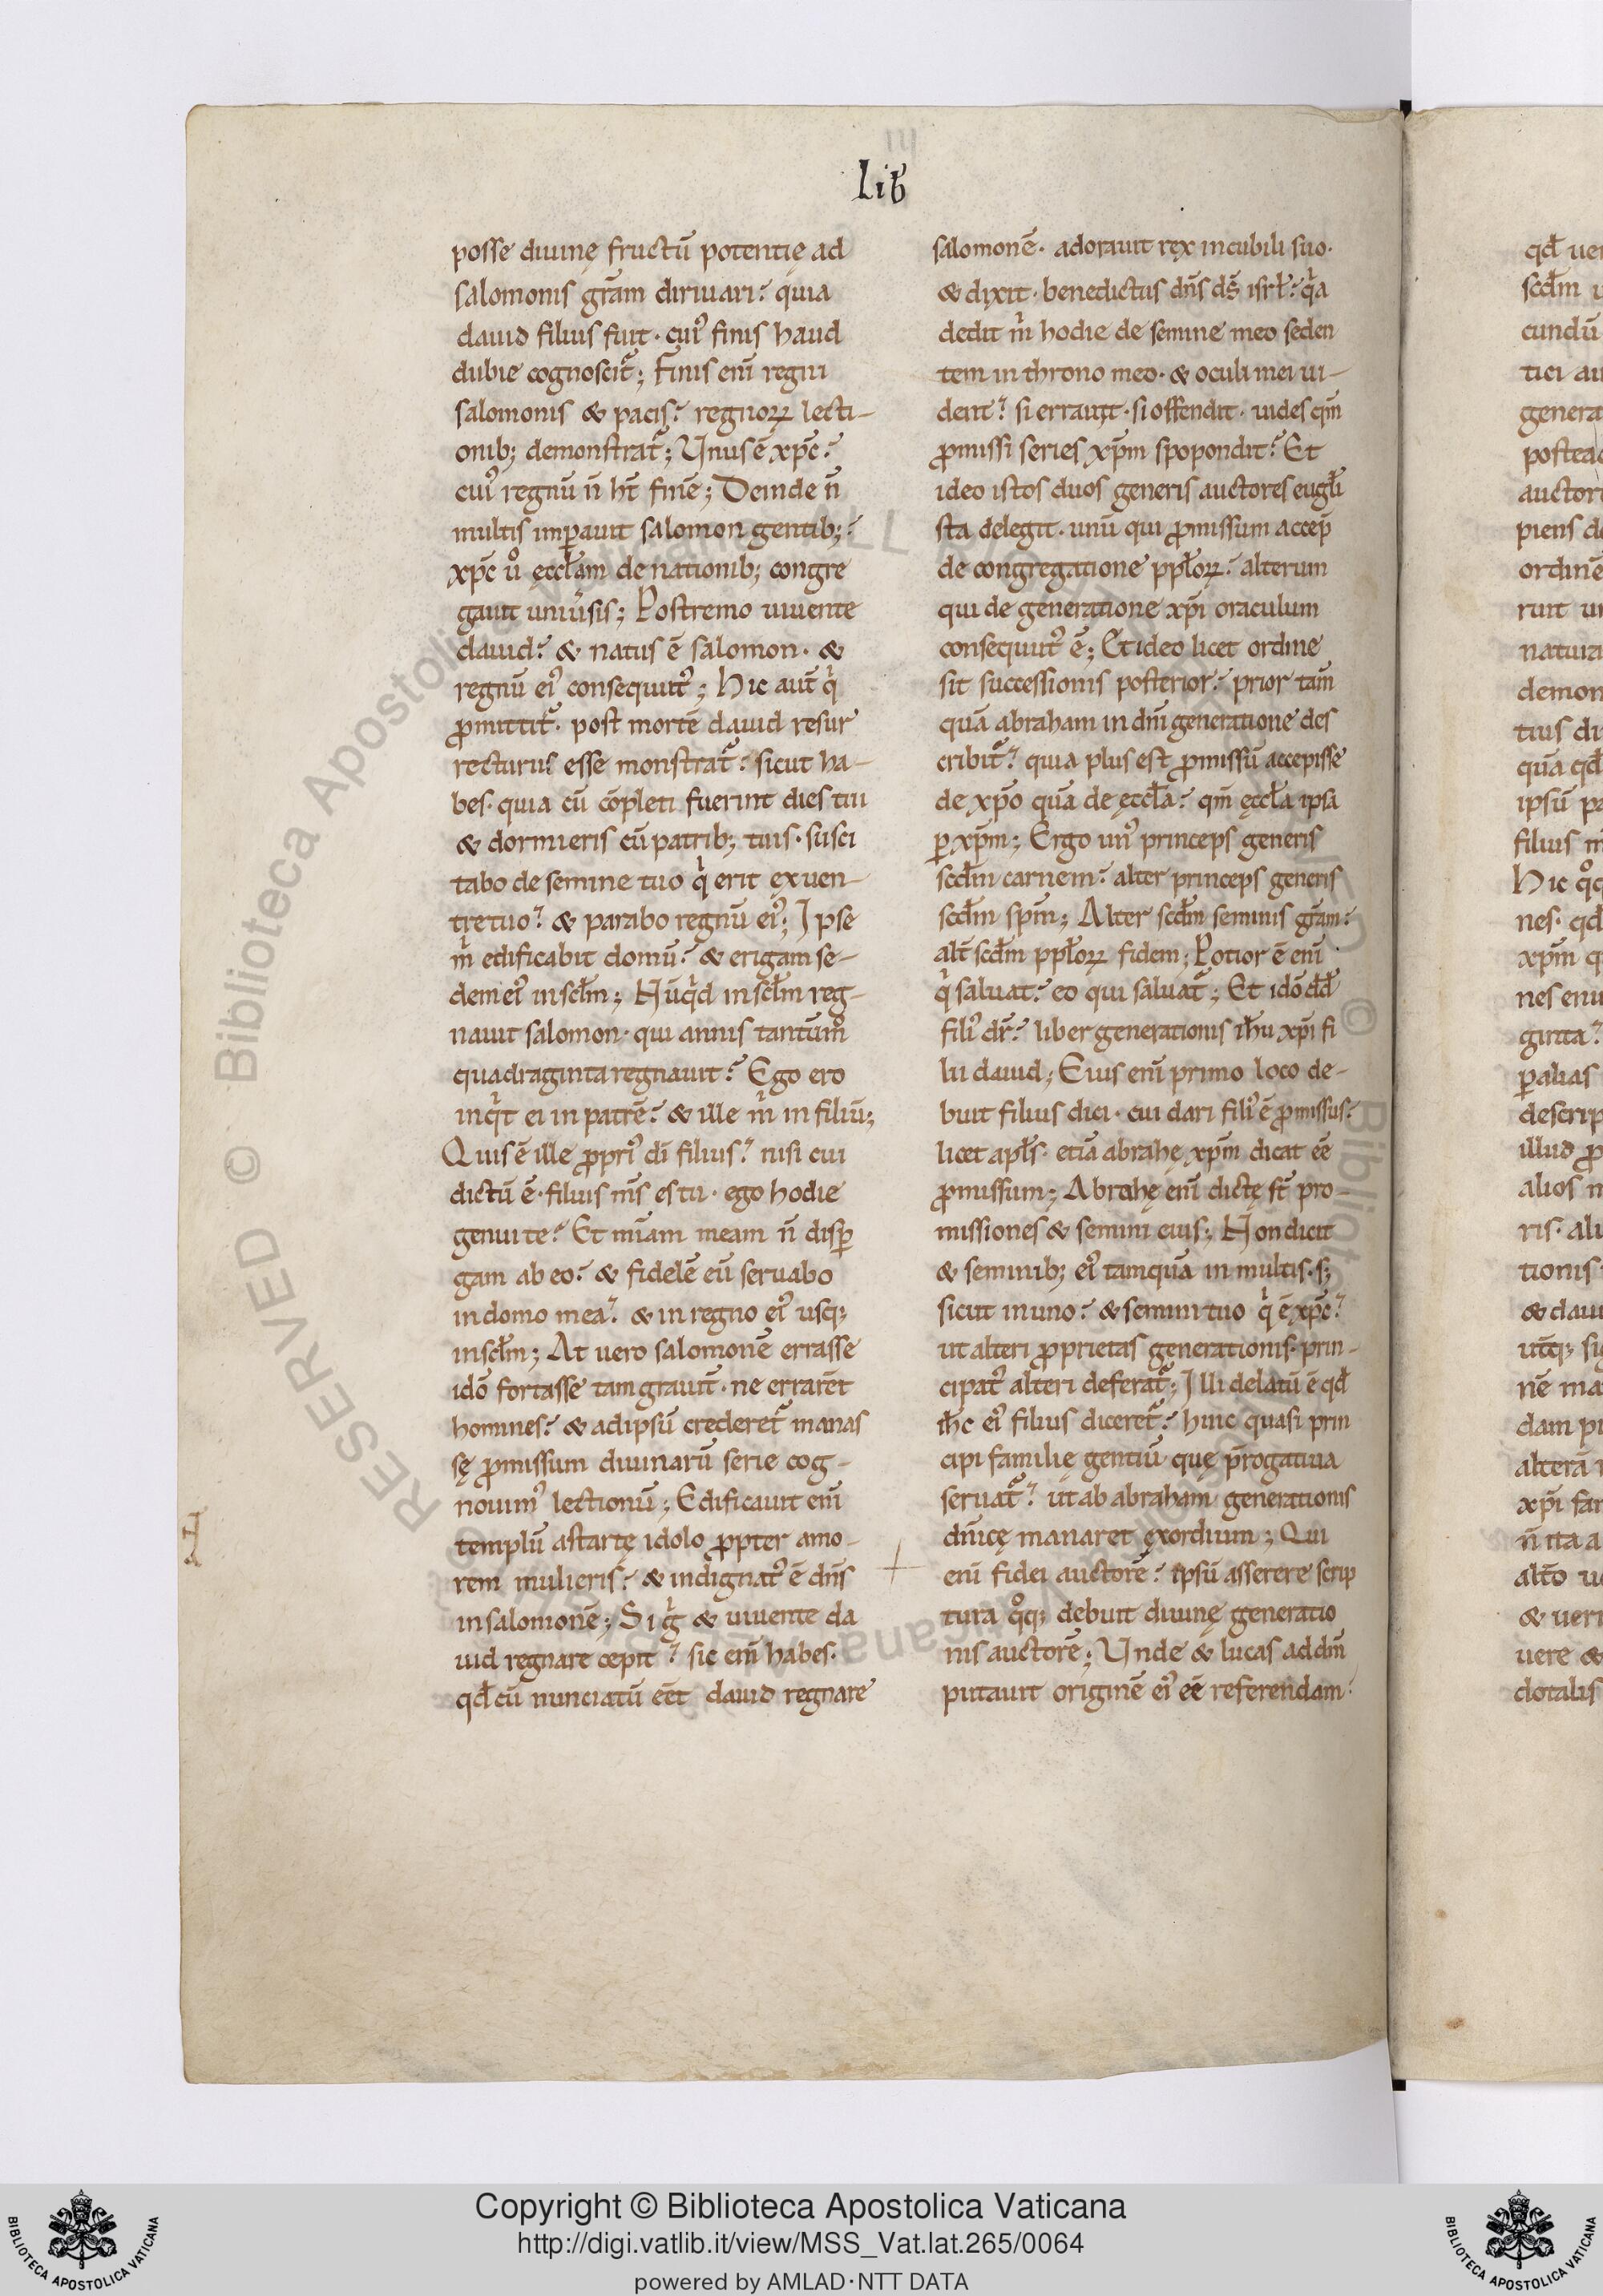 Lib̄
posse diuinę fructū potentię ad
salomonis gr̄am diriuari? quia
dauid filius fuit · cui᷒ finis haud
dubie cognoscit᷑; Finis eni̅ regni
salomonis & pacis? regnoꝝ lecti-
onib; demonstrat᷑; Unus ē xp̄c?
cui᷒ regnū n̄ ht̄ finē; Deinde n̄
multis imꝑauit salomon gentib;?
xp̄c ů ęccl̄am de nationib; congre
gauit uniu̾sis; Postremo uiuente
dauid? & natus ē salomon · &
regnū ei᷒ consequut᷒; Hic aut̄ qͥ
ꝓmittit᷑ · post mortē dauid resur
recturus esse monstrat᷑? sicut ha-
bes · quia cū cōpleti fuerint dies tui
& dormieris cū patrib; tuis · susci
tabo de semine tuo qͥ erit ex uen-
tre tuo? & parabo regnū ei᷒; Ipse
mͥ edificabit domū? & erigam se-
dem ei᷒ in scl̄m; Nūqͥd in scl̄m reg-
nauit salomon · qui annis tantum̊
quadraginta regnauit? Ego ero
inqͥt ei in patrē? & ille mͥ in filiū;
Quis ē ille ꝓpri᷒ di̅ filius? nisi cui
dictū ē · filius m̄s es tu · ego hodie
genui te? Et mi̅am meam n̄ disꝑ
gam ab eo? & fidelē eū seruabo
in domo mea? & in regno ei᷒ usq;
in scl̄m; At uero salomonē errasse
idō fortasse tam grauit̄ · ne errarēt
homines? & ad ipsū crederet᷑ manas
sę ꝓmissum diuinarū serie cog-
nouim᷒ lectionū; Edificauit eni̅
templū astartę idolo ꝓpter amo-
rem mulieris? & indignat᷒ ē dn̄s
in salomonē; Sigͥ & uiuente da
uid regnare cepit? sic eni̅ habes ·
qd̄ cū nunciatū eēt dauid regnare
salomonē · adorauit rex in cubili suo ·
& dixit · benedictus dn̄s ds̄ isrl̄? qͥa
dedit mͥ hodie de semine meo seden
tem in throno meo · & oculi mei ui-
dent? si errauit · si offendit · uides qm̄
ꝓmissi series xp̄m spopondit? Et
ideo istos duos generis auctores eugl̄i
sta delegit · unū qui ꝓmissum accep̄
de congregatione ppl̄oꝝ? alterum
qui de generatione xp̄i oraculum
consequut᷒ ē; Et ideo licet ordine
sit successionis posterior? prior tam̄
quā abraham in dni̅ generatione des
cribit᷑? quia plus est ꝓmissū accepisse
de xp̄o quā de ęccl̄a? qm̄ ęccl̄a ipsa
ꝑ xp̄m; Ergo un᷒ princeps generis
scd̄m carnem? alter princeps generis
scd̄m sp̄m; Alter scd̄m seminis gr̄am?
alt̄ scd̄m ppl̄oꝝ fidem; Potior ē eni̅
qͥ saluat? eo qui saluat᷑; Et idō dd̄
fili᷒ dr̄? liber generationis ih̄u xp̄i fi
lii dauid; Eius eni̅ primo loco de-
buit filius dici · cui dari fili᷒ ē ꝓmissus?
licet apl̄s · etiā abrahę xp̄m dicat eē
ꝓmissum; Abrahę eni̅ dictę st̄ pro-
missiones & semini eius; Non dicit
& seminib; ei᷒ tamquā in multis · s;
sicut in uno? & semini tuo qͥ ē xp̄c?
ut alteri ꝓprietas generationis · prin-
cipat᷒ alteri deferat᷑; Illi delatū ē qd̄
ih̄c ei᷒ filius diceret᷑? huic quasi prin
cipi familię gentiū quę p̄rogatiua
seruat᷑? ut ab abraham generationis
dn̄icę manaret exordium; Qui
eni̅ fidei auctorē? ipsū asserere scrip
tura qͦq; debuit diuinę generatio
nis auctorē; Unde & lucas ad dm̄
putauit originē ei᷒ eē referendam ·
qd̄ uer
scd̄m
cundū
tici au
genera
postea
auctor
piens d
ordinē
runt
natura
demon
tius di
quā qd̄
ipsū pa
filius
Hic qͦq
nes · qd̄
xp̄m q
nes enu
ginta?
ꝑ alias
descrip
illud ꝓ
alios
ris · ali
tionis
& daui
utq; si
nē ma
dam p
alterā
xp̄i fa
n̄ ita a
alt̄o u
& ueri
uere &
dotalis
© Biblioteca Apostolica Vaticana ALL RIGHTS RESERVED
Copyright © Biblioteca Apostolica Vaticana
http://digi.vatlib.it/view/MSS_Vat.lat.265/0064
powered by AMLAD·NTT DATA
BIBLIOTECA APOSTOLICA VATICANA
BIBLIOTECA APOSTOLICA VATICANA